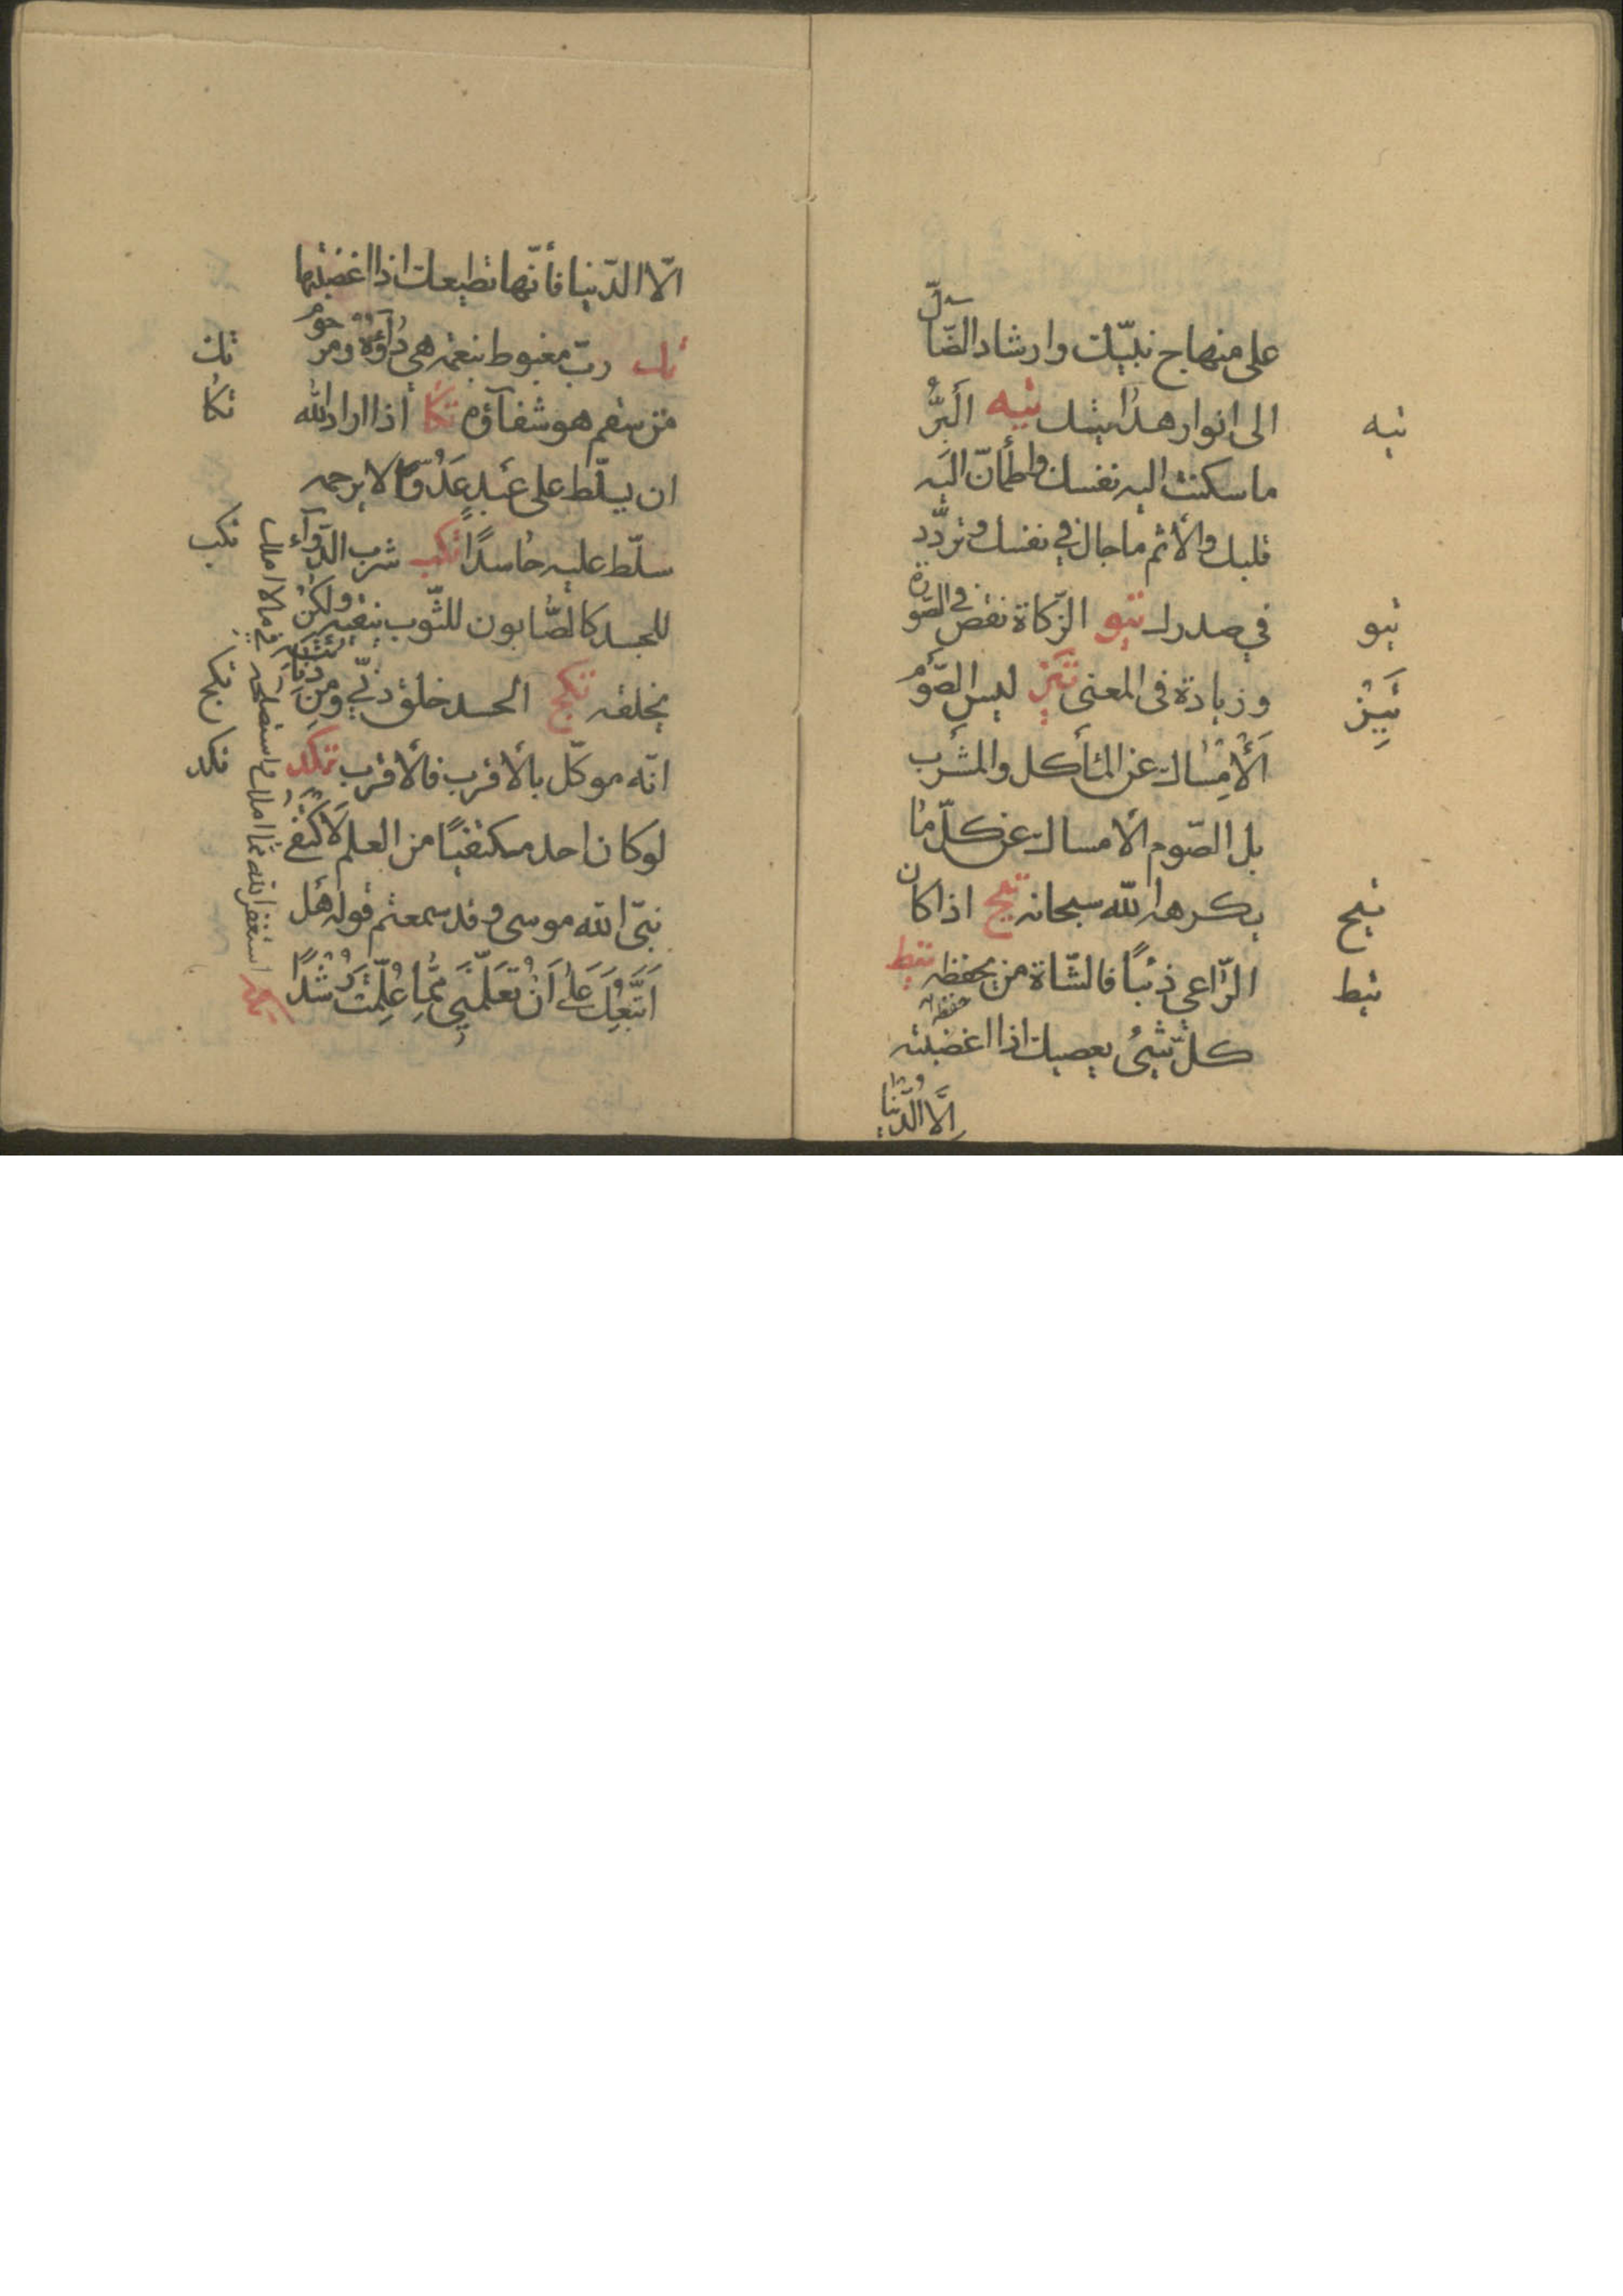 على منهاج نبيّك وارشاد الضّالّ
الى انوار هدايتك تيه البرُّ
ما سكنت اليه نفسك واطمأنّ اليه
قلبك والأثم ما جال في نفسك وتردّد
في صدرك تيو الزّكاة نقص فى الصّورة
وزيادة فى المعنى تيز ليس الصّوم
الأمساك عن المأكل والمشرب
بل الصّوم الأمساك عن كلّ ما
يكرهه الله سبحانه تيح اذا كان
الرّاعي ذئبًا فالشّاة من يحفظه تيط
حفظه
كلّ شيئ يعصيك اذا اغضبته
الّا الدّنيا
تيه
تيو
تيز
تيح
تيط
الّا الدّنيا فأنّها تطيعك اذا اغضبتها
تك ربّ مغبوط بنعمة هي داؤه ومرحوم
من سقم هو شفاؤه تكا اذا اراد الله
ان يسلّط على عبد عدوًّا لا يرحمه
سلّط عليه حاسدًا تكب شرب الدّواء
للجسد كالصّابون للثّوب ينقيه ولكن
يخلقه تكج الحسد خلق دنّي ومن دنائته
انّه موكّل بالأقرب فالأقرب تكد
لو كان احد مكتفيًا من العلم لاكتفى
نبيّ الله موسى وقد سمعتم قوله هل
اَتَّبِعُكَ عَلى اَنْ تُعَلِّمَنِي مِمّا عُلِّمْتَ رُشْدًا
تكه
تك
تكا
تكب
تكج
تكد
استغفر الله ممّا املك واستصلحه فيما لا املك